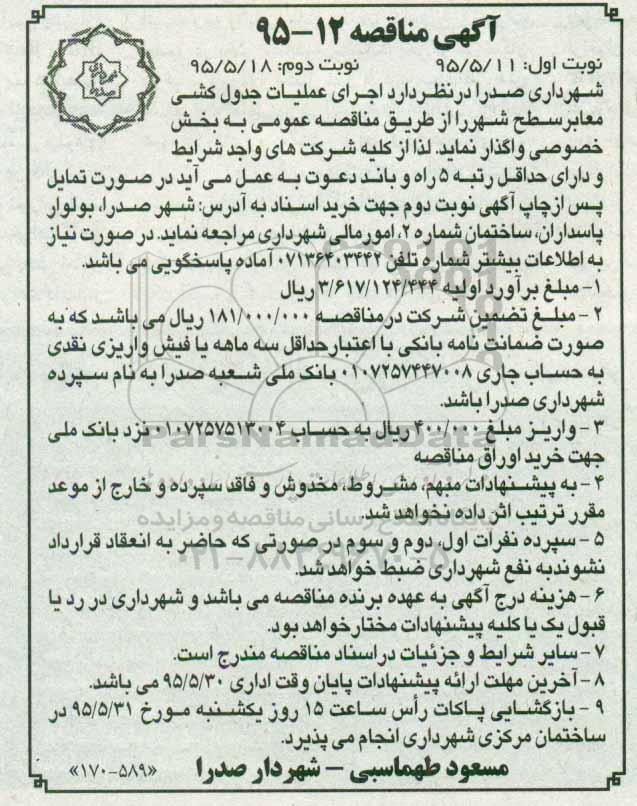 آگهی مناقصه ۱۲-۹۵
نوبت اول: ۹۵/۵/۱۱ نوبت دوم: ۹۵/۵/۱۸
شهرداری صدرا درنظردارد اجرای عملیات جدول کشی
معابر سطح شهر را از طریق مناقصه عمومی به بخش
خصوصی واگذار نماید. لذا از کلیه شرکت های واجد شرایط
و دارای حداقل رتبه ۵ راه و باند دعوت به عمل می آید در صورت تمایل
پس از چاپ آگهی نوبت دوم جهت خرید اسناد به آدرس: شهر صدرا، بولوار
پاسداران، ساختمان شماره ۲، امور مالی شهرداری مراجعه نماید. در صورت نیاز
به اطلاعات بیشتر شماره تلفن ۰۷۱۳۶۴۰۳۴۴۲ آماده پاسخگویی می باشد.
۱- مبلغ برآورد اولیه ۳/۶۱۷/۱۲۴/۴۴۴ ریال
۲- مبلغ تضمین شرکت در مناقصه ۱۸۱/۰۰۰/۰۰۰ ریال می باشد که به
صورت ضمانت نامه بانکی با اعتبار حداقل سه ماهه یا فیش واریزی نقدی
به حساب جاری ۰۱۰۷۲۵۷۴۴۷۰۰۸ بانک ملی شعبه صدرا به نام سپرده
شهرداری صدرا باشد.
۳- واریز مبلغ ۴۰۰/۰۰۰ ریال به حساب ۰۱۰۷۲۵۷۵۱۳۰۰۴ نزد بانک ملی
جهت خرید اوراق مناقصه
۴- به پیشنهادات مبهم، مشروط، مخدوش و فاقد سپرده و خارج از موعد
مقرر ترتیب اثر داده نخواهد شد.
۵- سپرده نفرات اول، دوم و سوم در صورتی که حاضر به انعقاد قرارداد
نشوند به نفع شهرداری ضبط خواهد شد.
۶- هزینه درج آگهی به عهده برنده مناقصه می باشد و شهرداری در رد یا
قبول یک یا کلیه پیشنهادات مختار خواهد بود.
۷- سایر شرایط و جزئیات در اسناد مناقصه مندرج است.
۸- آخرین مهلت ارائه پیشنهادات پایان وقت اداری ۹۵/۵/۳۰ می باشد.
۹- بازگشایی پاکات رأس ساعت ۱۵ روز یکشنبه مورخ ۹۵/۵/۳۱ در
ساختمان مرکزی شهرداری انجام می پذیرد.
مسعود طهماسبی – شهردار صدرا
«۱۷۰-۵۸۹»
ParsNamadData
پایگاه اطلاع رسانی مناقصه و مزایده
۰۲۱-۸۸۳۴۹۶۷۰-۵